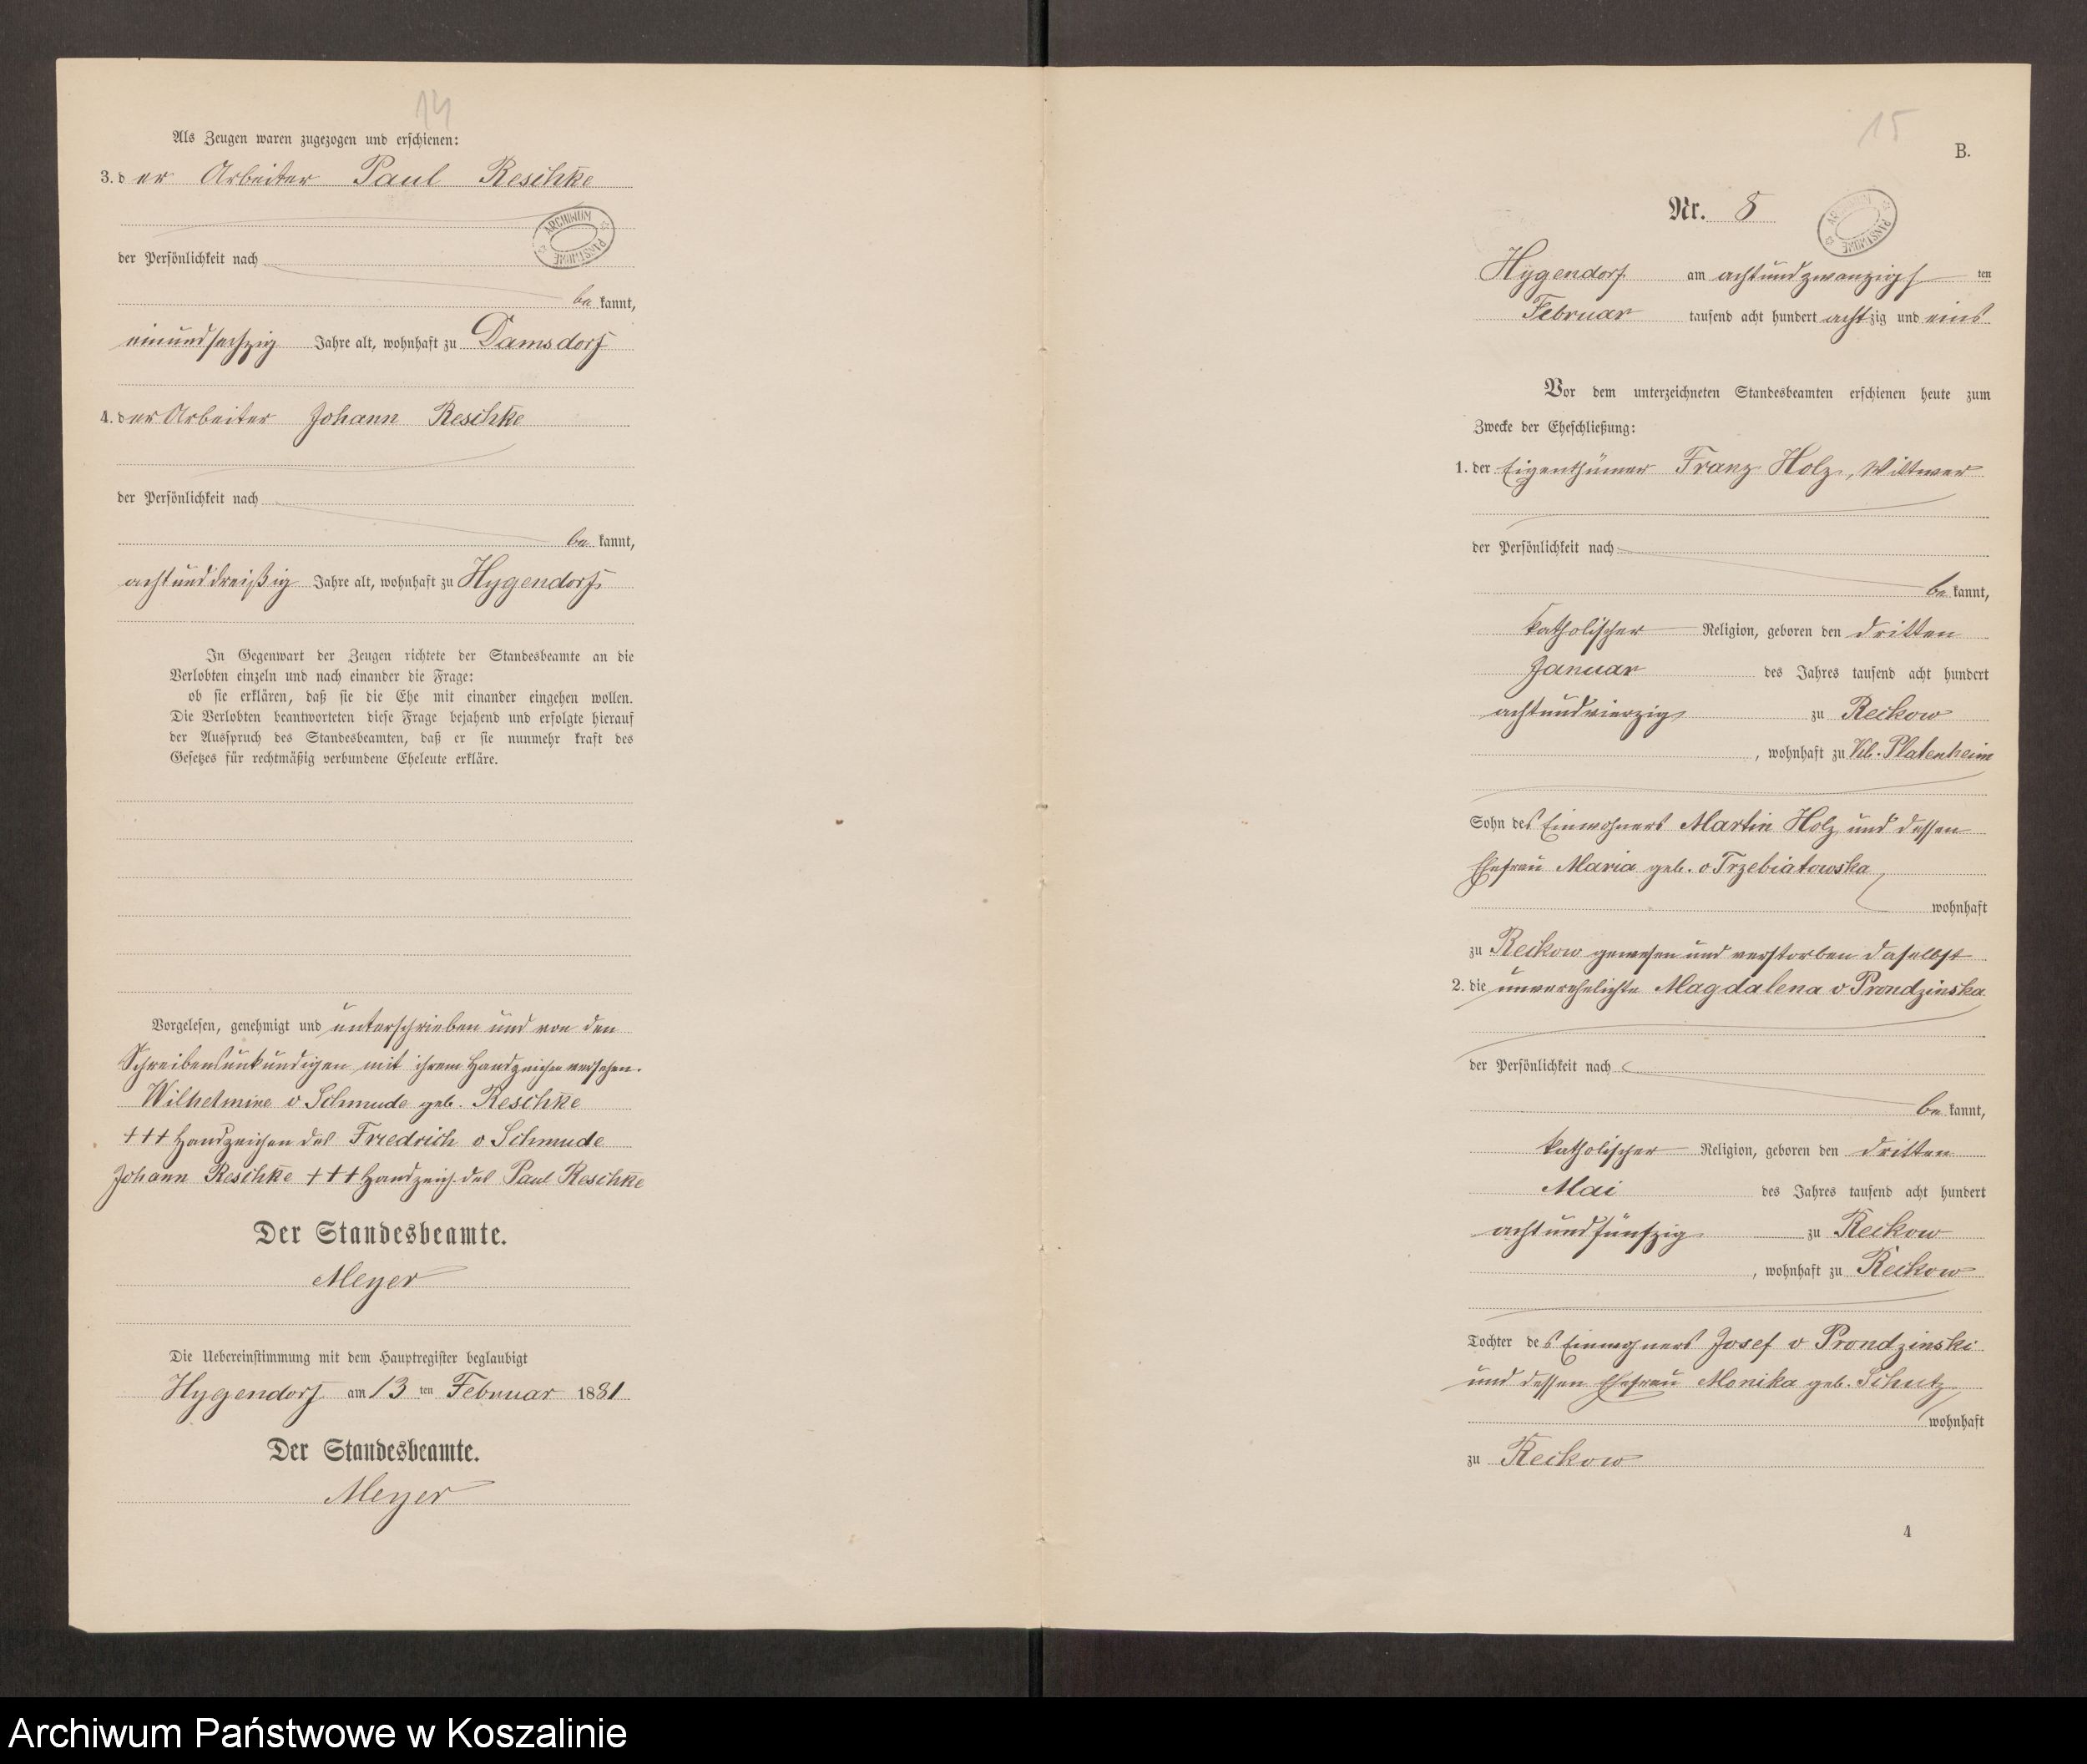 14
Als Zeugen waren zugezogen und erschienen:
3. der Arbeiter Paul Reschke
ARCHIWUM PAŃSTWOWE
der Persönlichkeit nach
be kannt,
einundsechzig Jahre alt, wohnhaft zu Damsdorf
4. der Arbeiter Johann Reschke
der Persönlichkeit nach
be kannt,
achtunddreißig Jahre alt, wohnhaft zu Hygendorf
In Gegenwart der Zeugen richtete der Standesbeamte an die
Verlobten einzeln und nach einander die Frage:
ob sie erklären, daß sie die Ehe mit einander eingehen wollen.
Die Verlobten beantworteten diese Frage bejahend und erfolgte hierauf
der Ausspruch des Standesbeamten, daß er sie nunmehr kraft des
Gesetzes für rechtmäßig verbundene Eheleute erkläre.
Vorgelesen, genehmigt und unterschrieben und von den
Schreibensunkundigen mit ihrem Handzeichen versehen.
Wilhelmine v Schmude geb. Reschke
+++ Handzeichen des Friedrich v Schmude
Johann Reschke +++ Handzeich. des Paul Reschke
Der Standesbeamte.
Meyer
Die Uebereinstimmung mit dem Hauptregister beglaubigt
Hygendorf am 13 ten Februar 1881
Der Standesbeamte.
Meyer
15
B.
Nr. 8
ARCHIWUM PAŃSTWOWE
Hygendorf am achtundzwanzigs ten
Februar tausend acht hundert achtzig und eins
Vor dem unterzeichneten Standesbeamten erschienen heute zum
Zwecke der Eheschließung:
1. der Eigenthümer Franz Holz, Wittwer
der Persönlichkeit nach
be kannt,
katholischer Religion, geboren den dritten
Januar des Jahres tausend acht hundert
achtundvierzig zu Reckow
, wohnhaft zu Kl. Platenheim
Sohn des Einwohners Martin Holz und dessen
Ehefrau Maria geb. v Trzebiatowska
wohnhaft
zu Reckow gewesen und verstorben daselbst
2. die unverehelichte Magdalena v Prondzinska
der Persönlichkeit nach
be kannt,
katholischer Religion, geboren den dritten
Mai des Jahres tausend acht hundert
achtundfünfzig zu Reckow
, wohnhaft zu Reckow
Tochter des Einwohners Josef v Prondzinski
und dessen Ehefrau Monika geb. Schutz
wohnhaft
zu Reckow
4
Archiwum Państwowe w Koszalinie